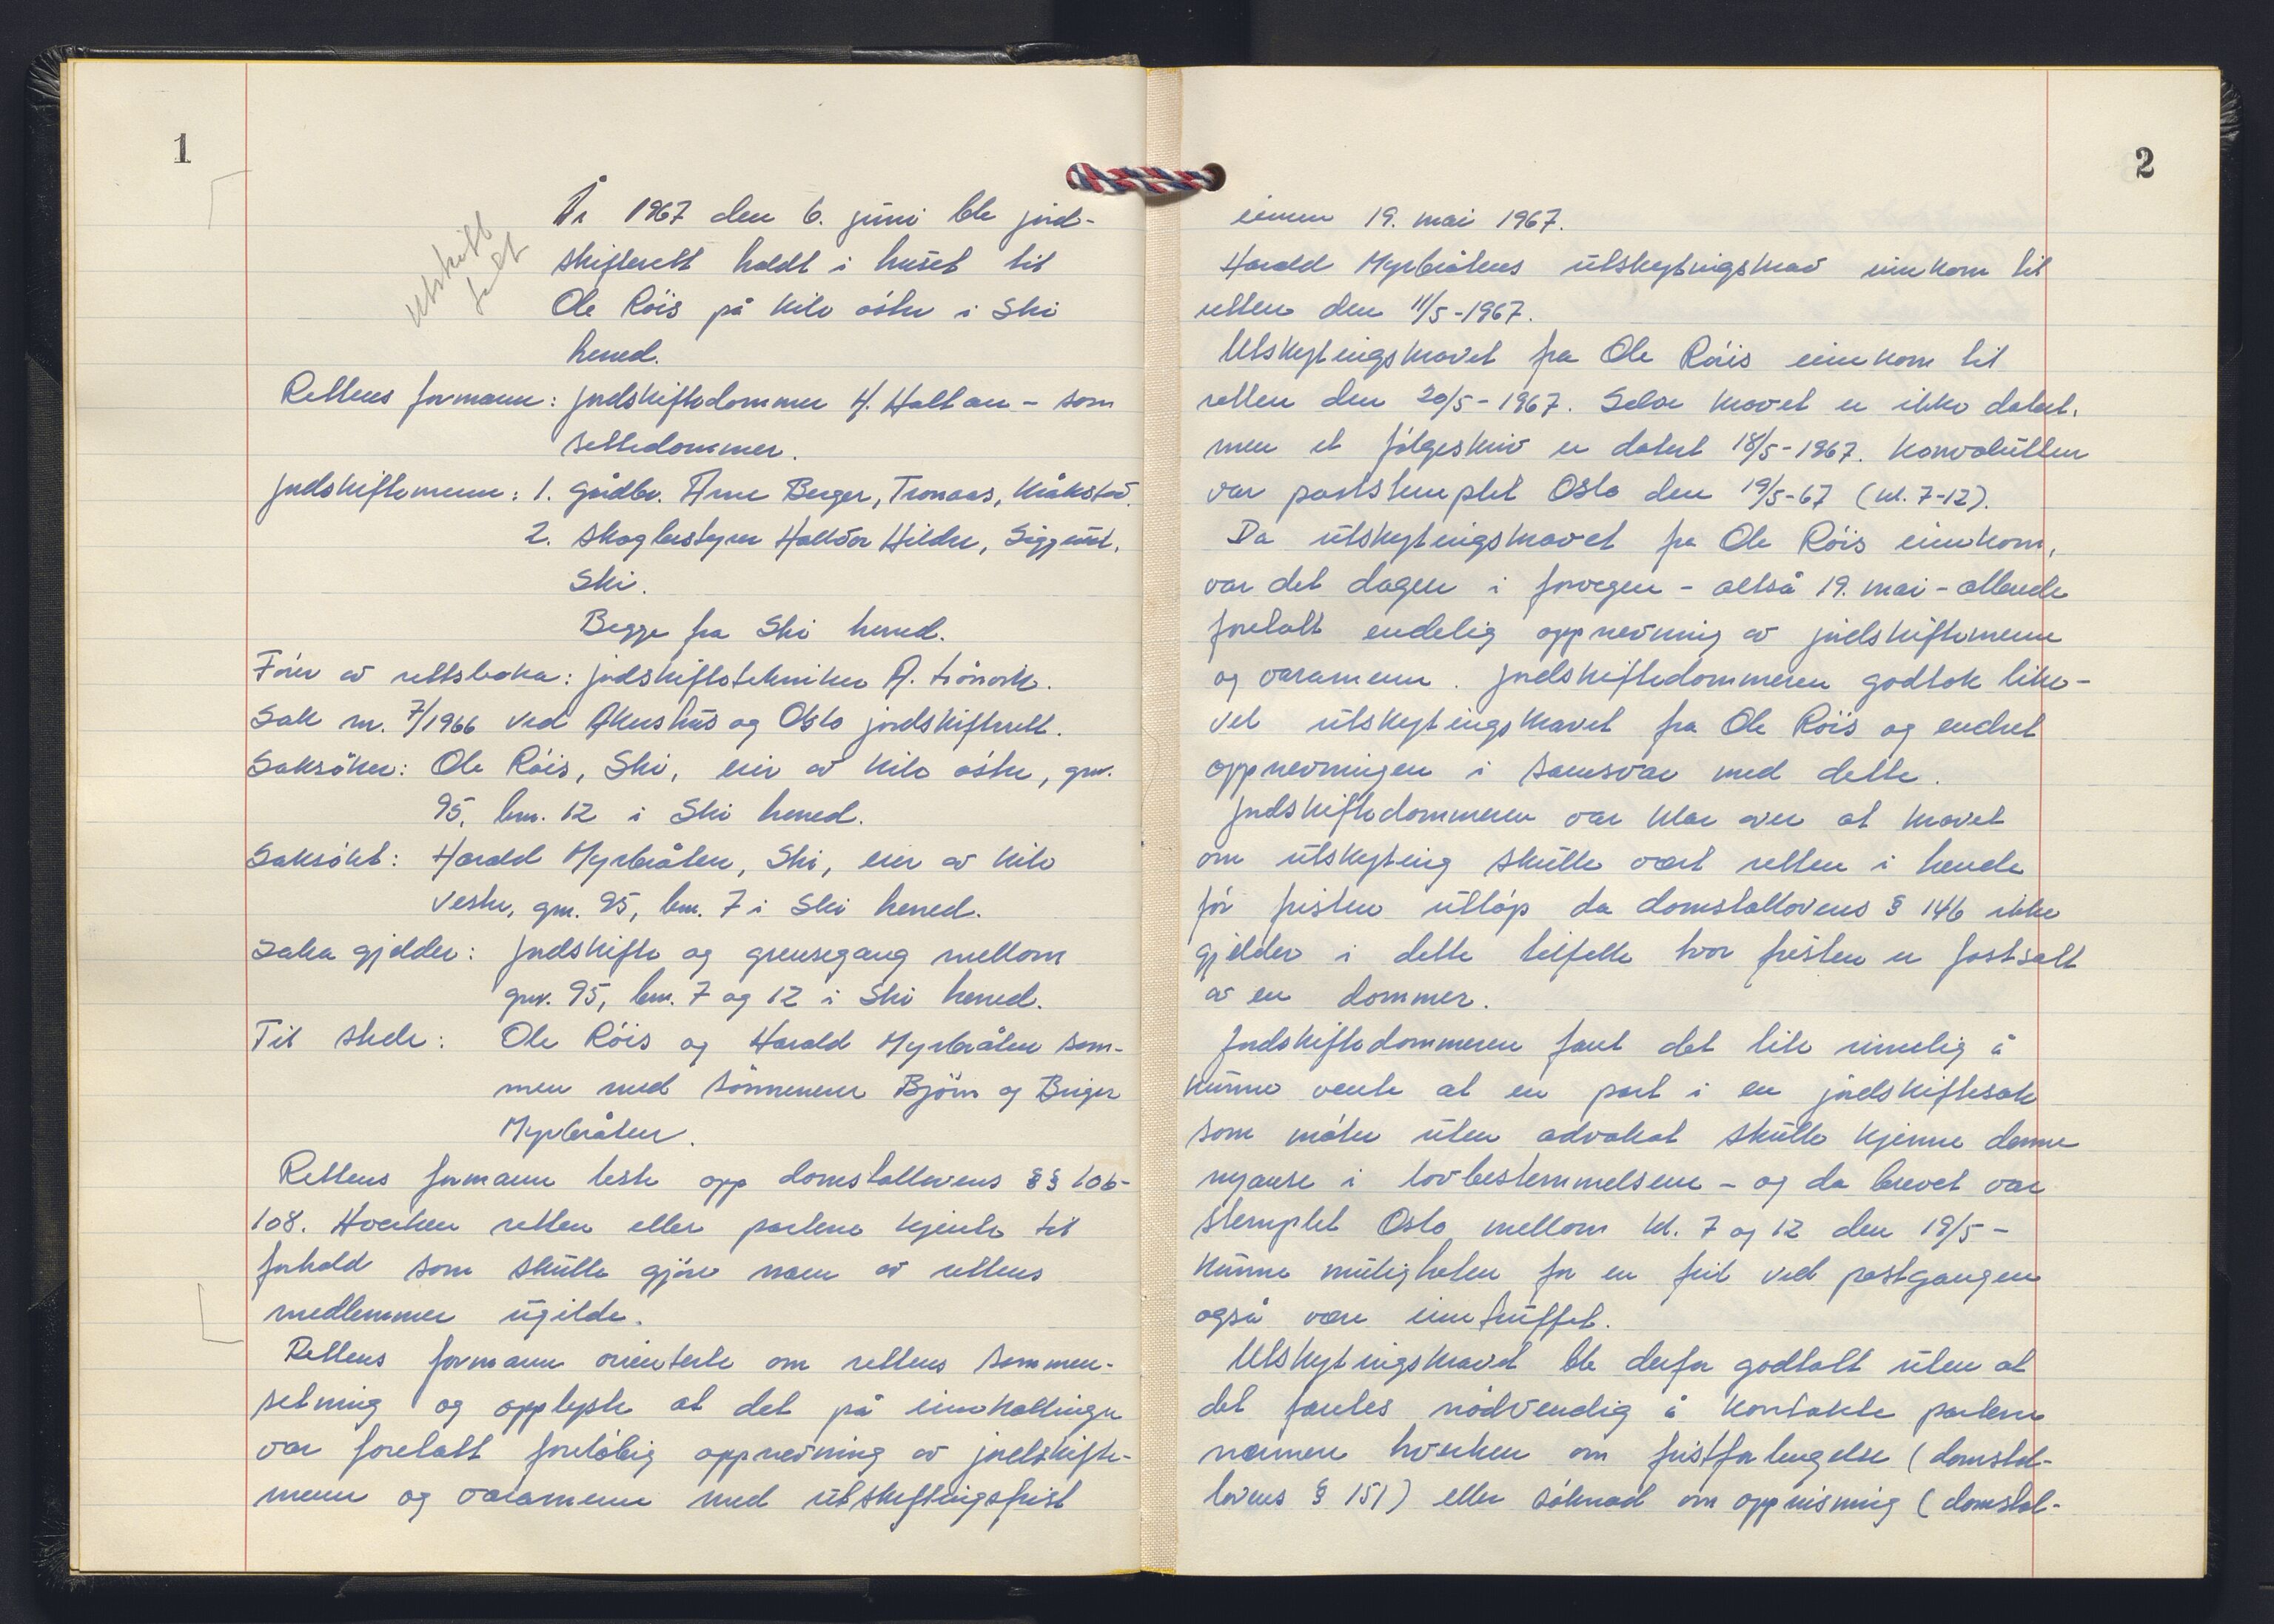 1
År 1967 den 6. juni ble jord-
skifterett holdt i huset til
Ole Röis på Kilo östre i Ski
herred.
Utskrift
Rettens formann: jordskiftedommer H. Haltan - som
settedommer.
Jordskiftemenn: 1. gårdbr. Arne Berger, Tronaas, Kråkstad.
2. Skogbestyrer Halvor Hildre, Siggerud,
Ski.
Begge fra Ski herred.
Förer av rettsboka: jordskiftetekniker A.
Sak nr. 7/1966 ved Akershus og Oslo jordskifterett.
Saksöker: Ole Röis, Ski, eier av Kilo östre, gnr.
95, bnr. 12 i Ski herred.
Saksökt: Harald Myrbråten, Ski, eier av Kilo
vestre, gnr. 95, bnr. 7 i Ski herred.
Saka gjelder: Jordskifte og grensegang mellom
gnr. 95, bnr. 7 og 12 i Ski herred.
Til stede: Ole Röis og Harald Myrbråten sam-
men med sönnenene Björn og Birger
Myrbråten.
Rettens formann leste opp domstollovens §§ 106-
108. Hverken retten eller partene kjente til
forhold som skulle gjöre noen av rettens
medlemmer ugilde.
Rettens formann orienterte om rettens sammen-
setning og opplyste at det på innkallingen
var foretatt forelöbig oppnevning av jordskifte-
menn og varamenn med utskytingsfrist
2
innen 19. mai 1967.
Harald Myrbråtens utskytingskrav innkom til
retten den 11/5-1967.
Utskytingskravet fra Ole Röis innkom til
retten den 20/5-1967. Selve kravet er ikke datert,
men et fölgeskriv er datert 18/5-1967. Konvolutten
var poststemplet Oslo den 19/5-67 (kl. 7-12).
Da utskytingskravet fra Ole Röis innkom,
var det dagen i forvegen - altså 19. mai - allerede
foretatt endelig oppnevning av jordskiftemenn
og varamenn. Jordskiftedommeren godtok like-
vel utskytingskravet fra Ole Röis og endret
oppnevningen i samsvar med dette.
Jordskiftedommeren var klar over at kravet
om utskyting skulle vært retten i hende
för fristen utlöp da domstollovens § 146 ikke
gjelder i dette tilfelle hvor fristen er fastsatt
av en dommer.
Jordskiftedommeren fant det lite rimelig å
kunne vente at en part i en jordskiftesak
som möter uten advokat skulle kjenne denne
nyanse i lovbestemmelsene - og da brevet var
stemplet Oslo mellom kl. 7 og 12 den 19/5 -
kunne muligheten for en feil ved postgangen
også være inntruffet.
Utskytingskravet ble derfor godtatt uten at
det fantes nödvendig å kontakte partene
nærmere hverken om fristforlengelse (domstol-
lovens § 151) eller söknad om oppreisning (domstol-